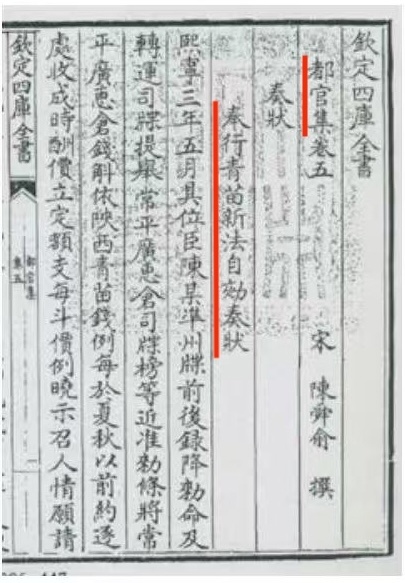 欽定四庫全書
都官集卷五
宋 陳舜俞 撰
奏狀
奉行青苗新法自劾奏狀
熙寧三年五月其位臣陳某準州牒前後録降勅命及
轉運司牒提舉常平廣惠倉司牒榜等近准勅條將常
平廣惠倉錢斛依陝西青苗錢例每於夏秋以前約逐
處收成時酬價立定額支每斗價例曉示召人情願請
欽定四庫全書
都官集
卷五